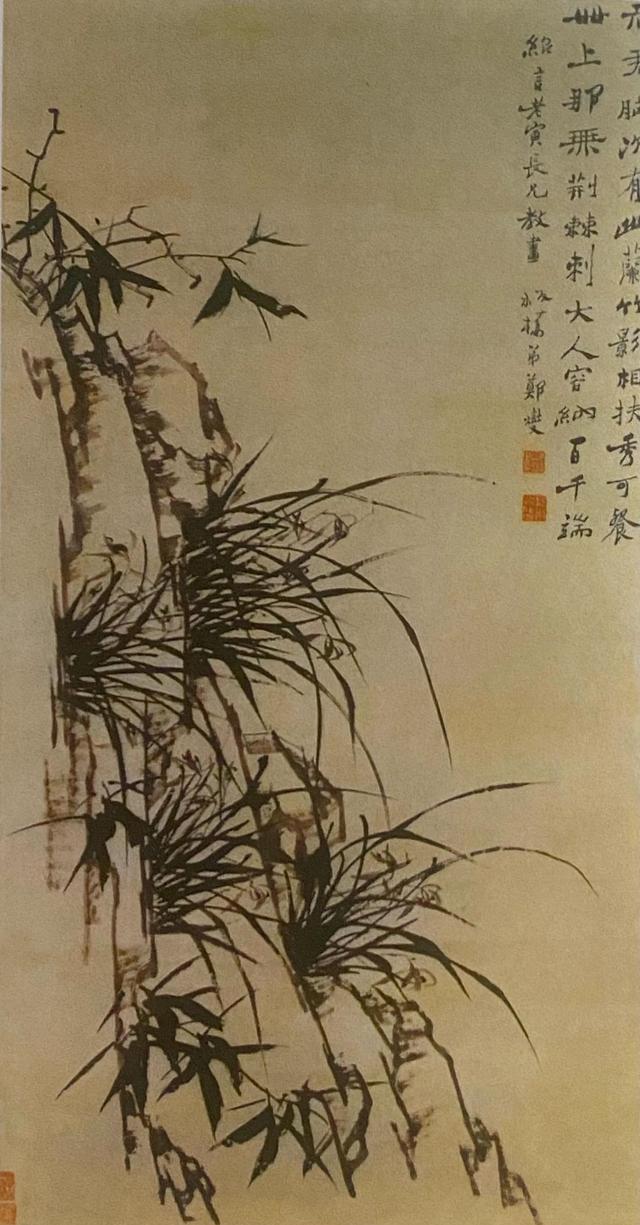 胸次有幽蘭竹影相扶秀可餐
世上那無荆棘刺大人容納百千端
紹言老寅長兄教畫 板橋弟鄭燮